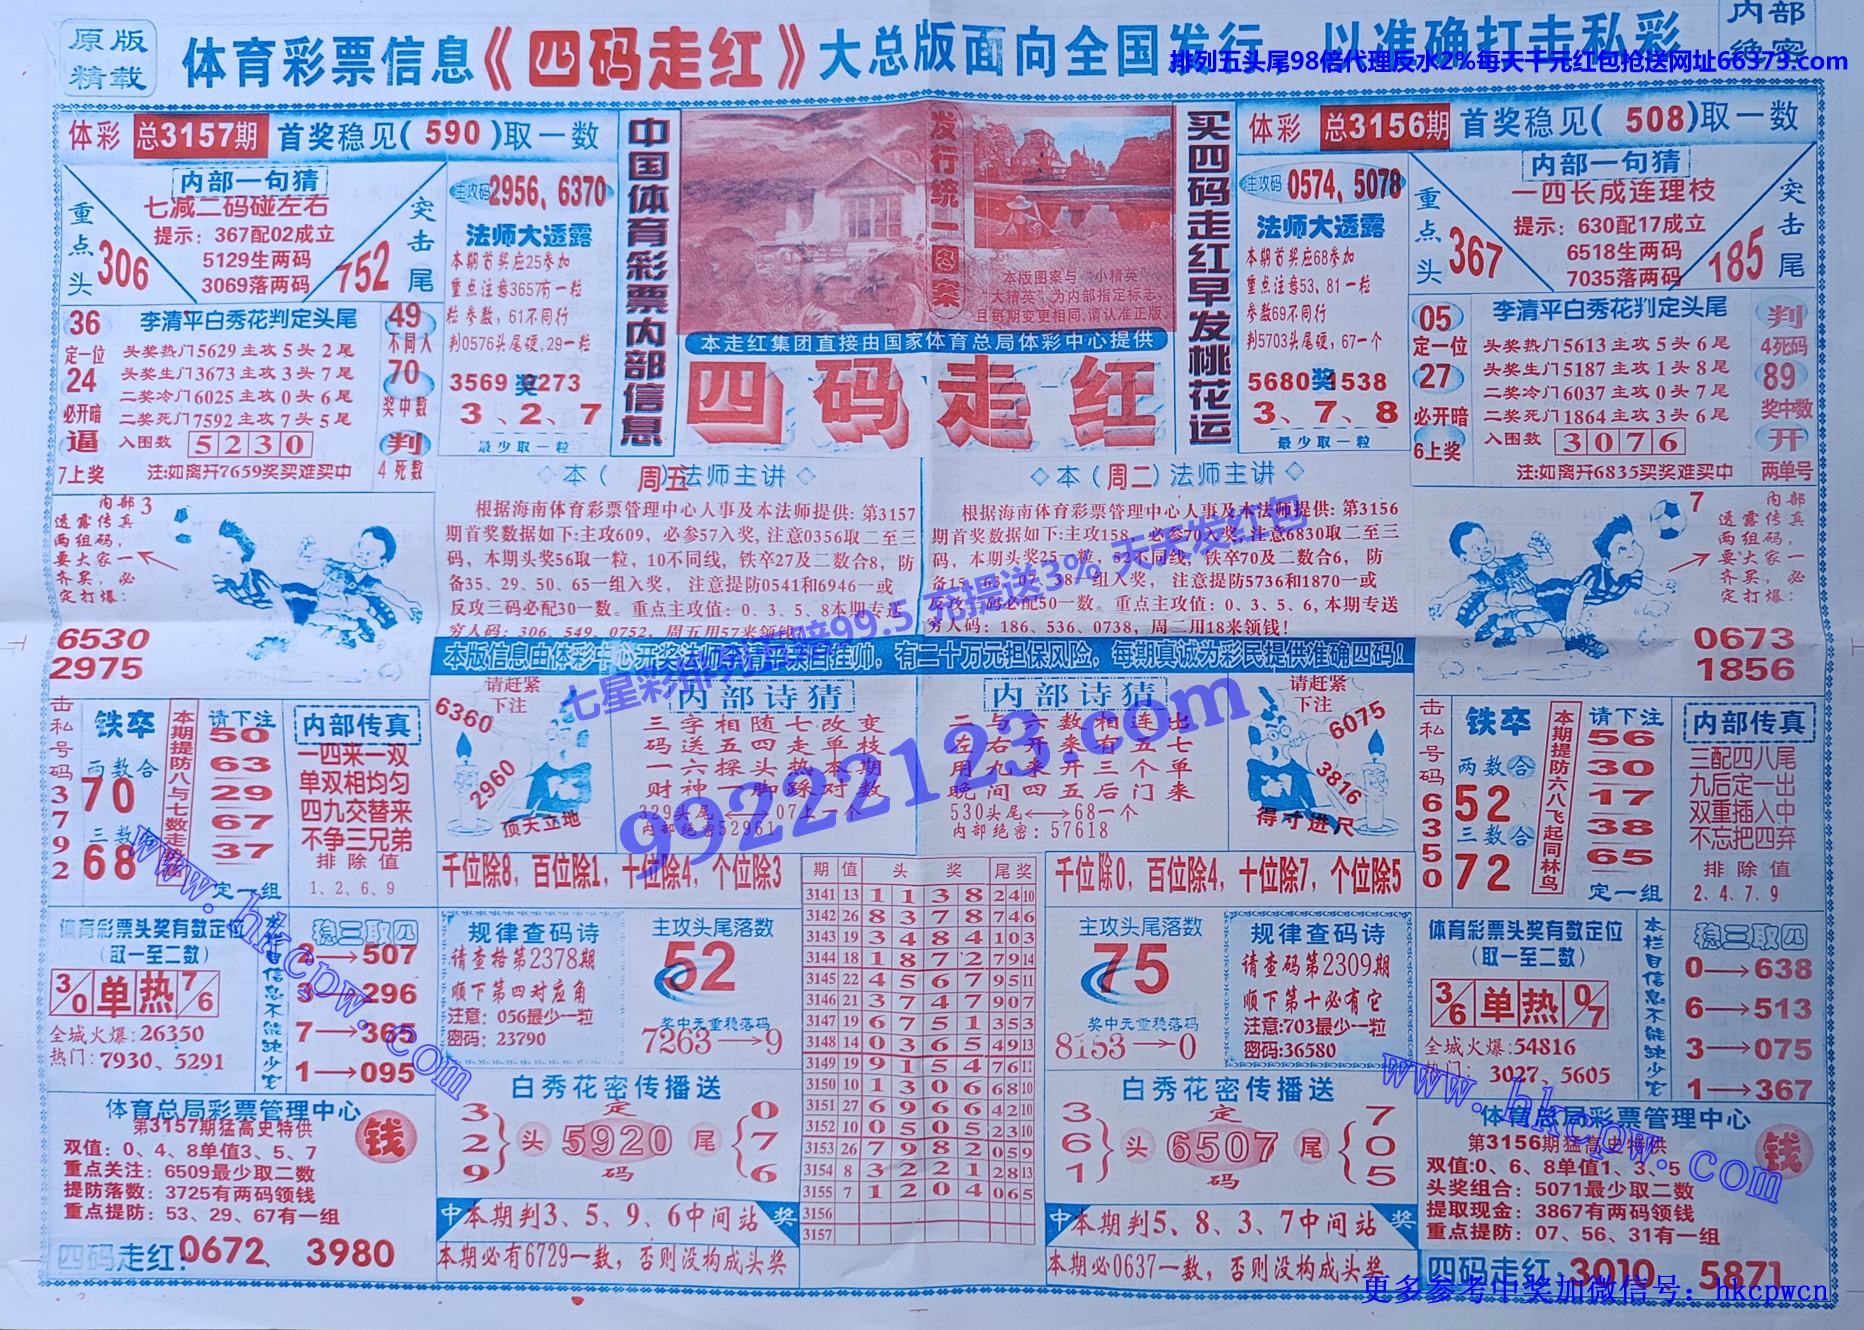 原版
精载
体育彩票信息《四码走红》大总版面向全国发行，以准确打击私彩
内部
绝密
排列五头尾98倍代理反水2%每天千元红包抢送网址66373.com
体彩 总3157期 首奖稳见(590)取一数
内部一句猜
七减二码碰左右
提示：367配02成立
5129生两码
3069落两码
重点头
306
突击尾
752
主攻码 2956、6370
法师大透露
本期首奖应25参加
重点注意3657有一粒
粒参数，61不同行
判0576头尾硬，29一粒
3569奖1273
3、2、7
最少取一粒
36
定一位
24
必开暗
逼
7上奖
李清平白秀花判定头尾
头奖热门5629主攻5头2尾
头奖生门3673主攻3头7尾
二奖冷门6025主攻0头6尾
二奖死门7592主攻7头5尾
入围数 5230
注：如离开7659奖买难买中
49
不同入
70
奖中数
判
4死数
中国体育彩票内部信息
发行统一图案
本版图案与“小精英”
“大精英”为内部指定标志，
且每期变更相同，请认准正版
本走红集团直接由国家体育总局体彩中心提供
四码走红
买四码走红早发桃花运
体彩 总3156期 首奖稳见(508)取一数
主攻码 0574、5078
法师大透露
本期首奖应68参加
重点注意53、81一粒
参数69不同行
判5703头尾硬，67一个
5680奖1538
3、7、8
最少取一粒
内部一句猜
一四长成连理枝
提示：630配17成立
6518生两码
7035落两码
重点头
367
突击尾
185
05
定一位
27
必开暗
6上奖
李清平白秀花判定头尾
头奖热门5613主攻5头6尾
头奖生门5187主攻1头8尾
二奖冷门6037主攻0头7尾
二奖死门1864主攻3头6尾
入围数 3076
注：如离开6835买奖难买中
判
4死码
89
奖中数
开
两单号
内部3
透露传真
两组码，
要大家一
齐买，必
定打爆：
6530
2975
◇本（周五）法师主讲◇
根据海南体育彩票管理中心人事及本法师提供：第3157
期首奖数据如下：主攻609，必参57入奖，注意0356取二至三
码，本期头奖56取一粒，10不同线，铁卒27及二数合8，防
备35、29、50、65一组入奖， 注意提防0541和6946一或
反攻三码必配30一数。重点主攻值：0、3、5、8本期专送
穷人码：306、549、0752，周五用57来领钱！
◇本（周二）法师主讲◇
根据海南体育彩票管理中心人事及本法师提供：第3156
期首奖数据如下：主攻158，必参70入奖，注意6830取二至三
码，本期头奖25一粒，52不同线，铁卒70及二数合6， 防
备15、63、07、38一组入奖， 注意提防5736和1870一或
反攻三码必配50一数。重点主攻值：0、3、5、6，本期专送
穷人码：186、536、0738，周二用18来领钱！
7
内部
透露传真
两组码，
要大家一
齐买，必
定打爆：
0673
1856
本版信息由体彩中心开奖法师李清平亲自挂帅，有二十万元担保风险，每期真诚为彩民提供准确四码！
击私号码37920
铁卒
两数合
70
三数合
68
本期提防八与七数走
请下注
50
63
29
67
37
定一组
内部传真
一四来一双
单双相均匀
四九交替来
不争三兄弟
排除值
1、2、6、9
请赶紧
下注
6360
2960
顶天立地
内部诗猜
三字相随七改变
码送五四走单枝
一六探头热本期
财神一脚踩对数
329头尾⟷07上一个
内部绝密52961
内部诗猜
二与六数相连出
左右开来有五七
用九来开三个单
晚间四五后门来
530头尾⟷68一个
内部绝密：57618
请赶紧
下注
6075
3816
得寸进尺
击私号码6350
铁卒
两数合
52
三数合
72
本期提防六八飞起同林鸟
请下注
56
30
17
38
65
定一组
内部传真
三配四八尾
九后定一出
双重插入中
不忘把四弃
排除值
2、4、7、9
千位除8，百位除1，十位除4，个位除3
千位除0，百位除4，十位除7，个位除5
期 值 头奖 尾奖
3141 13 1 1 3 8 2 4 10
3142 26 8 3 7 8 7 4 6
3143 19 3 4 8 4 1 0 3
3144 18 1 8 7 2 7 9 14
3145 22 4 5 6 7 9 5 11
3146 21 3 7 4 7 9 0 7
3147 19 6 7 5 1 3 5 3
3148 14 0 3 6 5 4 9 13
3149 19 9 1 5 4 7 6 11
3150 10 1 3 0 6 6 8 10
3151 27 6 9 6 6 4 2 10
3152 10 0 5 0 5 2 3 10
3153 26 7 9 8 2 0 5 9
3154 8 3 2 2 1 2 8 13
3155 7 1 2 0 4 0 6 5
3156
3157
体育彩票头奖有数定位
（取一至二数）
3/0 单热 7/6
全城火爆：26350
热门：7930、5291
本栏目信息不能缺少它
稳三取四
2→507
3→296
7→365
1→095
规律查码诗
请查格第2378期
顺下第四对应角
注意：056最少一粒
密码：23790
主攻头尾落数
52
奖中无重稳落码
7263→9
白秀花密传播送
3
2
9
头
定
5920
码
尾
0
7
6
中 本期判3、5、9、6中间站 奖
本期必有6729一数，否则没构成头奖
主攻头尾落数
75
奖中无重稳落码
8153→0
规律查码诗
请查码第2309期
顺下第十必有它
注意：703最少一粒
密码：36580
白秀花密传播送
3
6
1
头
定
6507
码
尾
7
0
5
中 本期判5、8、3、7中间站 奖
本期必0637一数，否则没构成头奖
体育彩票头奖有数定位
（取一至二数）
3/6 单热 0/7
全城火爆：54816
热门：3027、5605
本栏目信息不能缺少它
稳三取四
0→638
6→513
3→075
1→367
体育总局彩票管理中心
第3157期猛高史特供
双值：0、4、8单值3、5、7
重点关注：6509最少取二数
提防落数：3725有两码领钱
重点提防：53、29、67有一组
钱
四码走红：0672、3980
体育总局彩票管理中心
第3156期猛高史特供
双值：0、6、8单值1、3、5
头奖组合：5071最少取二数
提取现金：3867有两码领钱
重点提防：07、56、31有一组
钱
四码走红：3010、5871
七星彩排列五赔99.5 充提送3% 天天发红包
99222123.com
www.hkcpw.com
www.hkcpw.com
更多参考中奖加微信号：hkcpwcn